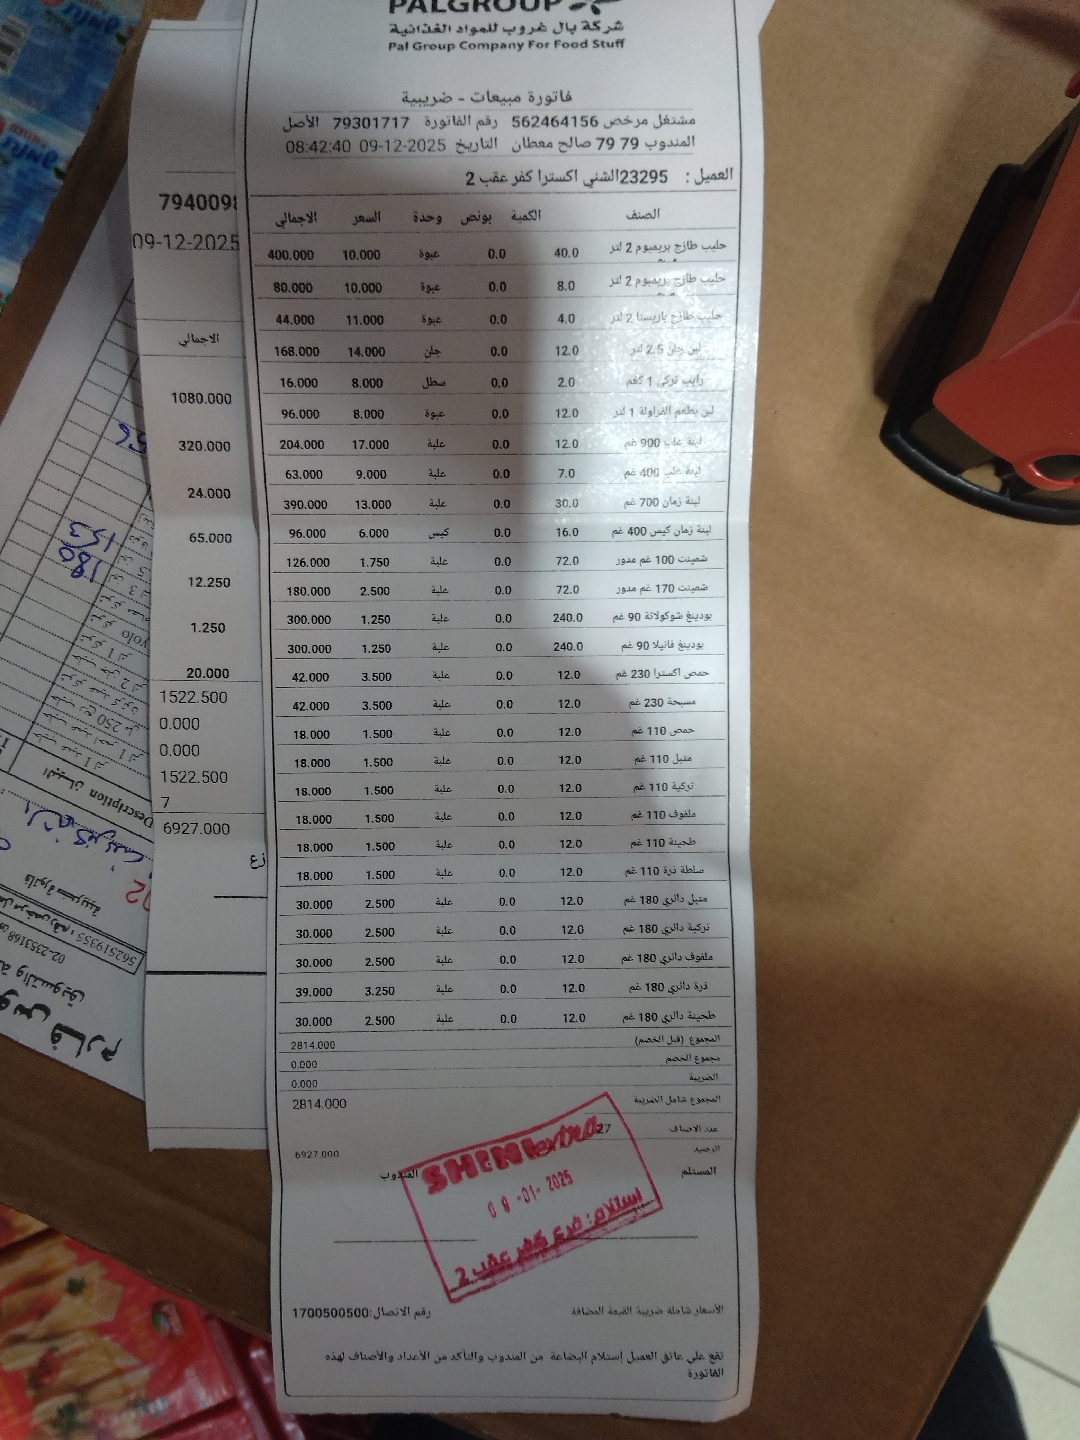 PALGROUP
شركة بال غروب للمواد الغذائية
Pal Group Company For Food Stuff
فاتورة مبيعات - ضريبية
مشتغل مرخص 562464156 رقم الفاتورة 79301717 الأصل
المندوب 79 79 صالح معطان التاريخ 09-12-2025 08:42:40
العميل : 23295الشني اكسترا كفر عقب 2
الصنف الكمية بونص وحدة السعر الاجمالي
حليب طازج بريميوم 2 لتر 40.0 0.0 عبوة 10.000 400.000
حليب طازج بريميوم 2 لتر 8.0 0.0 عبوة 10.000 80.000
حليب طازج باريستا 2 لتر 4.0 0.0 عبوة 11.000 44.000
لبن جلن 2.5 لتر 12.0 0.0 جلن 14.000 168.000
رايب تركي 1 كغم 2.0 0.0 سطل 8.000 16.000
لبن بطعم الفراولة 1 لتر 12.0 0.0 عبوة 8.000 96.000
لبنة علب 900 غم 12.0 0.0 علبة 17.000 204.000
لبنة علب 400 غم 7.0 0.0 علبة 9.000 63.000
لبنة زمان 700 غم 30.0 0.0 علبة 13.000 390.000
لبنة زمان كيس 400 غم 16.0 0.0 كيس 6.000 96.000
شمينت 100 غم مدور 72.0 0.0 علبة 1.750 126.000
شمينت 170 غم مدور 72.0 0.0 علبة 2.500 180.000
بودينغ شوكولاتة 90 غم 240.0 0.0 علبة 1.250 300.000
بودينغ فانيلا 90 غم 240.0 0.0 علبة 1.250 300.000
حمص اكسترا 230 غم 12.0 0.0 علبة 3.500 42.000
مسبحة 230 غم 12.0 0.0 علبة 3.500 42.000
حمص 110 غم 12.0 0.0 علبة 1.500 18.000
متبل 110 غم 12.0 0.0 علبة 1.500 18.000
تركية 110 غم 12.0 0.0 علبة 1.500 18.000
ملفوف 110 غم 12.0 0.0 علبة 1.500 18.000
طحينة 110 غم 12.0 0.0 علبة 1.500 18.000
سلطة ذرة 110 غم 12.0 0.0 علبة 1.500 18.000
متبل دائري 180 غم 12.0 0.0 علبة 2.500 30.000
تركية دائري 180 غم 12.0 0.0 علبة 2.500 30.000
ملفوف دائري 180 غم 12.0 0.0 علبة 2.500 30.000
ذرة دائري 180 غم 12.0 0.0 علبة 3.250 39.000
طحينة دائري 180 غم 12.0 0.0 علبة 2.500 30.000
المجموع (قبل الخصم) 2814.000
مجموع الخصم 0.000
الضريبة 0.000
المجموع شامل الضريبة 2814.000
عدد الاصناف 27
الرصيد 6927.000
المستلم المندوب
SHENI extra
08-01-2025
استلام: فرع كفر عقب 2
الأسعار شاملة ضريبة القيمة المضافة رقم الاتصال:1700500500
تقع على عاتق العميل إستلام البضاعة من المندوب والتأكد من الأعداد والأصناف لهذه
الفاتورة
794009
09-12-2025
الاجمالي
1080.000
320.000
24.000
65.000
12.250
1.250
20.000
1522.500
0.000
0.000
1522.500
7
6927.000
زع
180
153
yolo
البيـان Description
فاتورة ضريبية
562519355
02-2353168